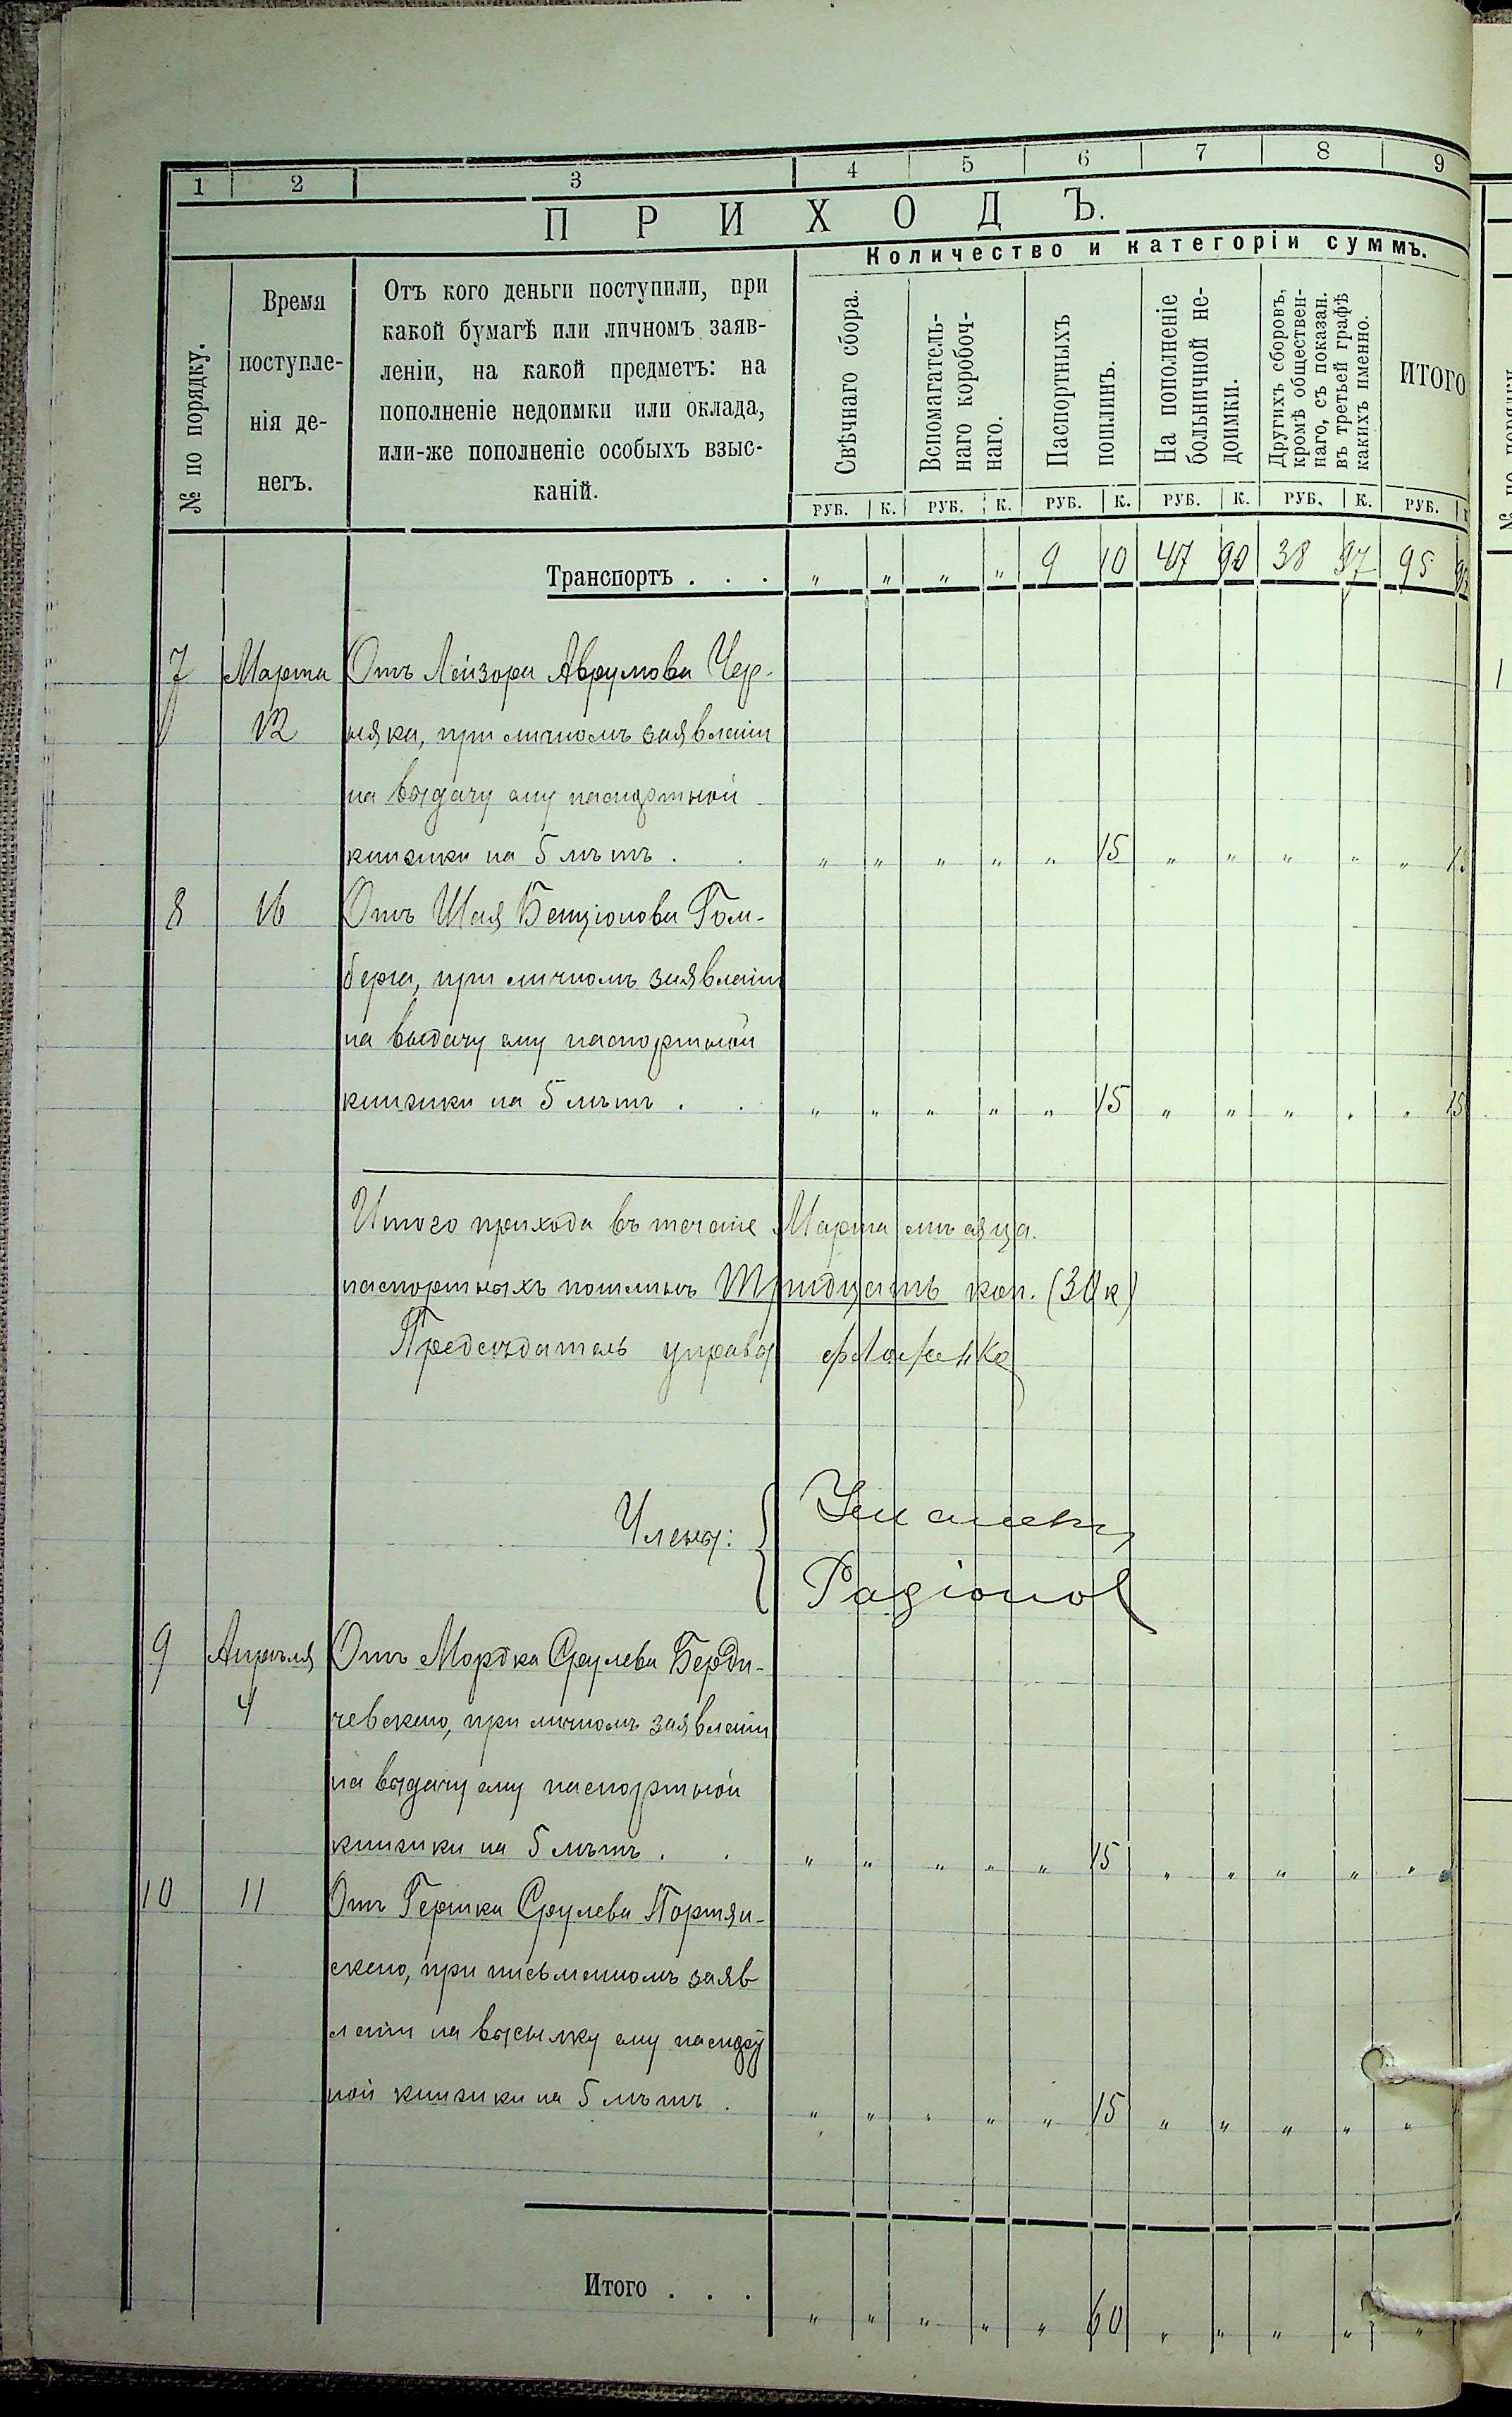 1 2 3 4 5 6 7 8 9
ПРИХОДЪ.
Количество и категоріи суммъ.
№ по порядку.
Время
поступле-
нія де-
негъ.
Отъ кого деньги поступили, при
какой бумагѣ или личномъ заяв-
леніи, на какой предметъ: на
пополненіе недоимки или оклада,
или-же пополненіе особыхъ взыс-
каній.
Свѣчнаго сбора.
Вспомагатель-
наго коробоч-
наго.
Паспортныхъ
пошлинъ.
На пополненіе
больничной не-
доимки.
Другихъ сборовъ,
кромѣ обществен-
наго, съ показан.
въ третьей графѣ
какихъ именно.
ИТОГО
РУБ. К. РУБ. К. РУБ. К. РУБ. К. РУБ. К. РУБ.
Транспортъ . . . „ „ „ „ 9 10 47 90 38 97 95
7 Марта Отъ Лейзора Аврумова Чер-
12 няка, при личномъ заявленіи
на выдачу ему паспортной
книжки на 5 лѣтъ . . „ „ „ „ „ 15 „ „ „ „ „ 15
8 16 Отъ Шая Бенціонова Гом-
берга, при личномъ заявленіи
на выдачу ему паспортной
книжки на 5 лѣтъ . . „ „ „ „ „ 15 „ „ „ „ „ 15
Итого прихода въ теченіе Марта мѣсяца
паспортныхъ пошлинъ Тридцать коп. (30 к)
Предсѣдатель управы
Члены:
9 Апрѣля Отъ Мордка Срулева Берди-
4 чевскаго, при личномъ заявленіи
на выдачу ему паспортной
книжки на 5 лѣтъ . . „ „ „ „ „ 15 „ „ „ „ „
10 11 Отъ Гершка Срулева Портян-
скаго, при письменномъ заяв
леніи на высылку ему паспорт
ной книжки на 5 лѣтъ . „ „ „ „ „ 15 „ „ „ „ „
Итого . . . „ „ „ „ „ 60 „ „ „ „ „